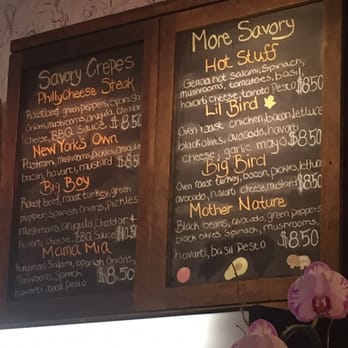 Savory Crepes
Philly Cheese Steak
Roast beef, green peppers, Spanish
Onions, mushrooms, arugula, cheddar
cheese, BBQ Sauce $8.50
New York's Own
Pastrami, mushrooms, pickles, arugula
bacon, havarti, mustard $8.50
Big Boy
Roast beef, roast turkey, green
pepper, Spanish onions, pickles
mushrooms, arugula, cheddar &
havarti cheese, BBQ Sauce $10.50
Mama Mia
Hungarian Salami, Spanish Onions,
Mushrooms, Spinach
havarti, basil pesto $8.50
More Savory
Hot Stuff
Genoa hot Salami, Spinach,
mushrooms, tomatoes, basil,
havarti cheese tomato Pesto $8.50
Lil Bird
Oven roast chicken, bacon, lettuce
black olives, avocado, havarti
cheese, garlic mayo $8.50
Big Bird
Oven roast turkey, bacon, pickles, lettuce
avocado, havarti cheese, mustard $8.50
Mother Nature
Black beans, avocado, green peppers
black olives, Spinach, mushrooms,
havarti, basil pesto $8.50